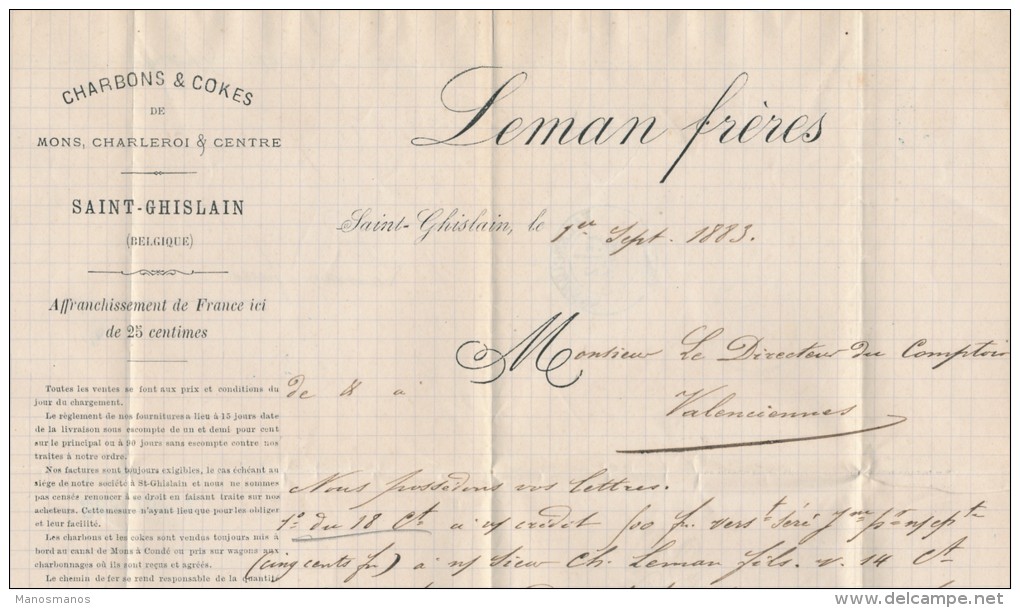 CHARBONS & COKES
DE
MONS, CHARLEROI & CENTRE
SAINT-GHISLAIN
(BELGIQUE)
Affranchissement de France ici
de 25 centimes
Toutes les ventes se font aux prix et conditions du
jour du chargement.
Le règlement de nos fournitures a lieu à 15 jours date
de la livraison sous escompte de un et demi pour cent
sur le principal ou à 90 jours sans escompte contre nos
traites à notre ordre.
Nos factures sont toujours exigibles, le cas échéant au
siége de notre société à St-Ghislain et nous ne sommes
pas censés renoncer à se droit en faisant traite sur nos
acheteurs. Cette mesure n'ayant lieu que pour les obliger
et leur facilité.
Les charbons et les cokes sont vendus toujours mis à
bord au canal de Mons à Condé ou pris sur wagons aux
charbonnages où ils sont reçus et agréés.
Le chemin de fer se rend responsable de la quantité
Leman frères
Saint-Ghislain, le 1er Sept. 1883.
Monsieur Le Directeur du Comptoir
de à
Valenciennes
Nous possédons vos lettres.
1° du 18 Ct à n/ crédit 500 fr. verst
(cinq cents fr) à n/ Sieur Ch. Leman fils. v. 14 Ct
Manosmanos
delcampe.net